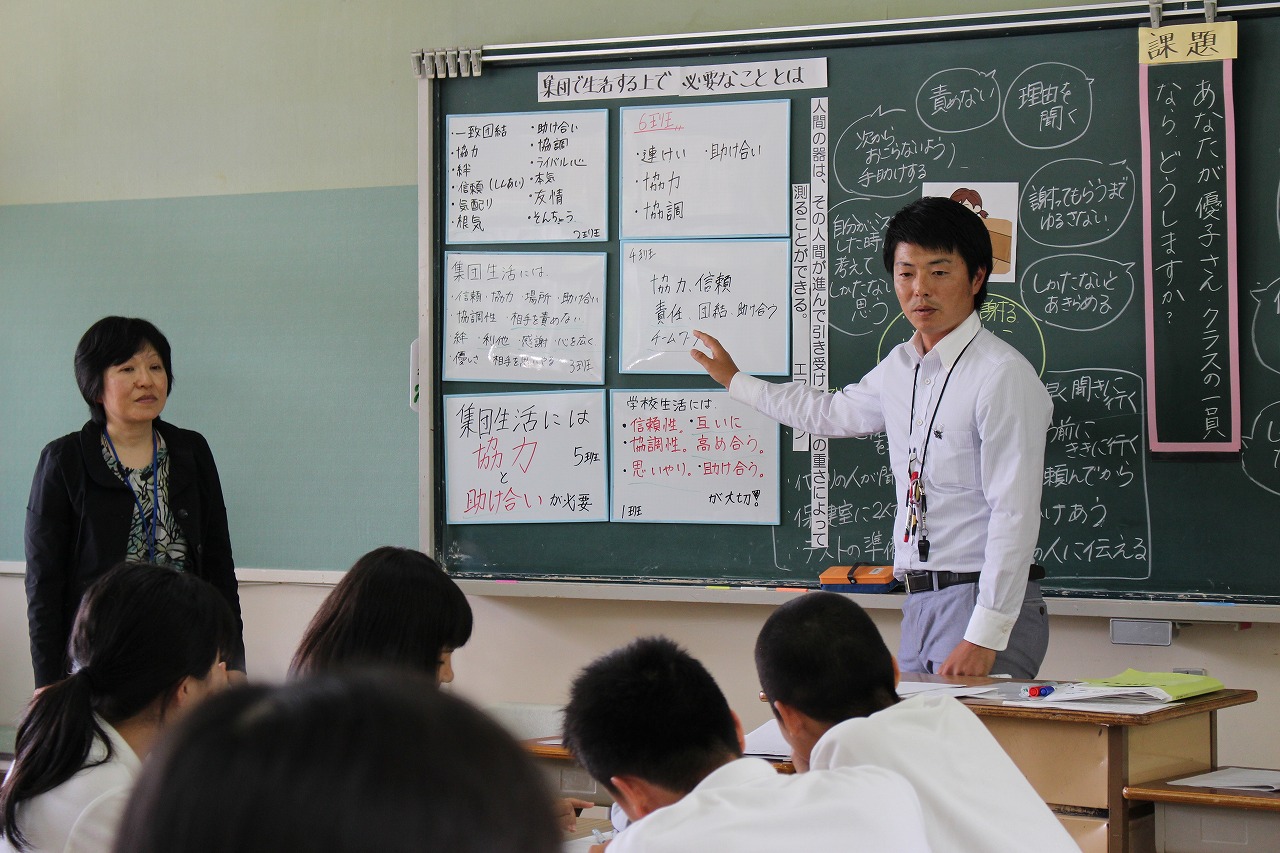 集団で生活する上で 必要なこととは
・一致団結
・協力
・絆
・信頼(ししあい)
・気配り
・根気
・助け合い
・協調
・ライバル心
・本気
・友情
・そんちょう
6班…
・連けい ・助け合い
・協力
・協調
集団生活には、
・信頼・協力・場所・助け合い
・協調性・相手を責めない
・絆・利他・感謝・心を広く
3班
4班
協力、信頼
責任、団結、助け合う
集団生活には
協力
と
助け合いが必要
5班
学校生活には、
・信頼性。・互いに
・協調性。高め合う。
・思いやり。・助け合う。
が大切!
1班
人間の器は、その人間が進んで引き受け
の重さによって
測ることができる。
次から
おこらないよう
手助けする
責めない
理由を
聞く
謝ってもらうまで
ゆるさない
しかたないと
あきらめる
した時
考えて
しかたない
思う
聞きに
行く
前に
ききに行く
頼んでから
保健室に2人
テストの準
の人に伝える
課題
あなたが優子さん・クラスの一員
なら、どうしますか？